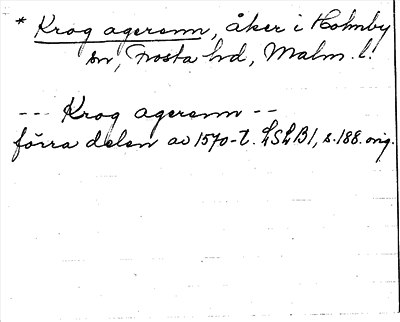 * Krog agerenn, åker i Holmby
sn, Frosta hd, Malm. l.
--- Krog agerenn --
förra delen av 1570-t. LSLB1, s. 188. orig.